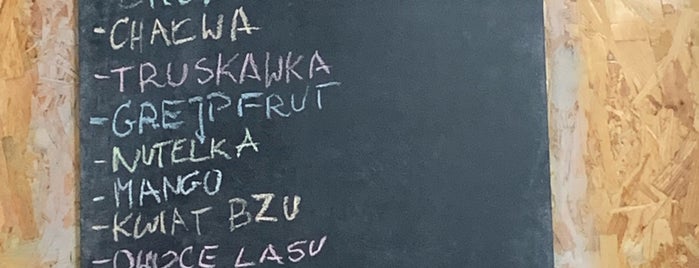 -CHAŁWA
-TRUSKAWKA
-GREJPFRUT
-NUTELKA
-MANGO
-KWIAT BZU
-OWOCE LASU